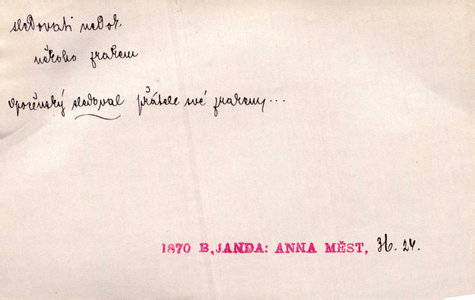 sledovati nedok.
někoho zrakem
Opočenský sledoval přátele své zrakem,...
1870 B.JANDA: ANNA MĚST, 36. 24.